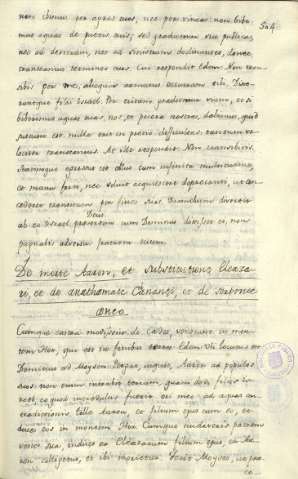 504
nos ibimus per agros aut, nec per vineas: non bibe-
mus aquas de puteis tuis; sed gradiemur via publica,
nec ad dexteram, nec ad sinistram declinantes, donec
transeamus terminos tuos. Cui respondit Edom: Non tran-
sibis per me, alioquin armatus occurram tibi. Dixe-
runtque filii Israel: Per tritam gradiemur viam, et si
biberimus aquas tuas, nos, et pecora nostra, dabimus, quod
justum est: nulla erit in pretio difficultas: tantum ve-
lociter transeamus. At ille respondit: Non transibitis.
Statimque egressus est obvius cum infinita multitudine,
et manu forti, nec voluit acquiescere deprecanti, ut con-
cederet transitum per fines suos.
ab eo Israel. Dominus
pugnabit adversus
De morte Aaron, et substitutione Eleaza-
ri, et de anathemate Chananei, et de serpente
æneo
Cumque castra movissent de Cades, venerunt in mon-
tem Hor, qui est in finibus terræ Edom: ubi locutus est
Dominus ad Moysen: Pergat, inquit, Aaron ad populos
suos: non enim intrabit terram, quam dedi filiis Is-
rael, eo quod incredulus fuerit ori meo, ad aquas con-
tradictionis. Tolle Aaron, et filium ejus cum eo, et
duces eos in montem Hor. Cumque nudaveris patrem
veste sua, indues ea Eleazarum filium ejus, et Aa-
ron colligetur, et ibi morietur. Fecit Moyses, ut præ-
ce-